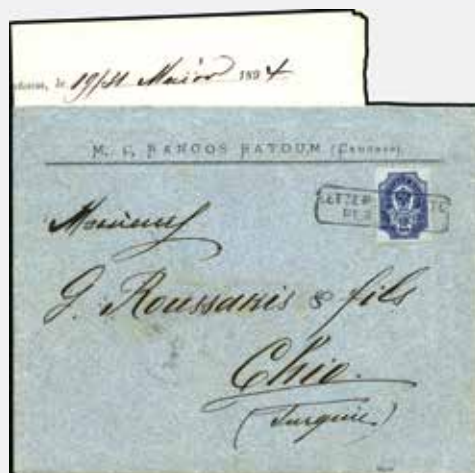 le 19/31 Maiov 1894
M. C. BANGOS BATOUM (Caucase)
Monsieur
G. Roussakis & fils
Chio.
(Turquie)